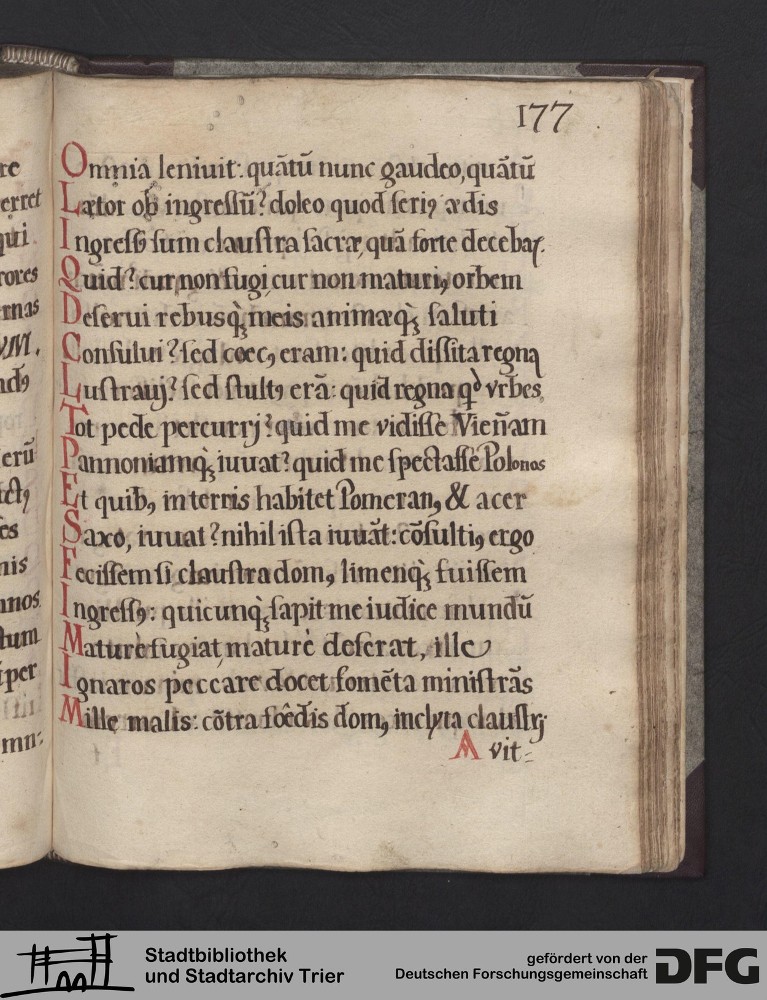 177
re
erret
qui
rores
ernas
VM.
nis
nnos
tum
per
mn:
Omnia leniuit: quātū nunc gaudeo, quātū
Lætor ob ingressū? doleo quod seriꝰ ædis
Ingressꝰ sum claustra sacræ, quā forte decebat.
Quid? cur non fugi cur non maturiꝰ orbem
Deserui rebusq̨́ meis animæq̨́ saluti
Consului? sed cœcꝰ eram: quid dissita regna
Lustrauj? sed stultꝰ erā: quid regna qđ vrbes
Tot pede percurrj? quid me vidisse Vieñam
Pannoniamq̨́ iuuat? quid me spectasse Polonos
Et quibꝰ in terris habitet Pomeranꝰ & acer
Saxo, iuuat? nihil ista iuuāt: cōsultiꝰ ergo
Fecissem si claustra domꝰ limenq̨́ fuissem
Ingressꝰ: quicunq̨́ sapit me iudice mundū
Maturè fugiat, maturè deserat, ille
Ignaros peccare docet fomēta ministrās
Mille malis: cōtra fœdis domꝰ inclyta claustrj
Avit=
Stadtbibliothek
und Stadtarchiv Trier
gefördert von der
Deutschen Forschungsgemeinschaft
DFG